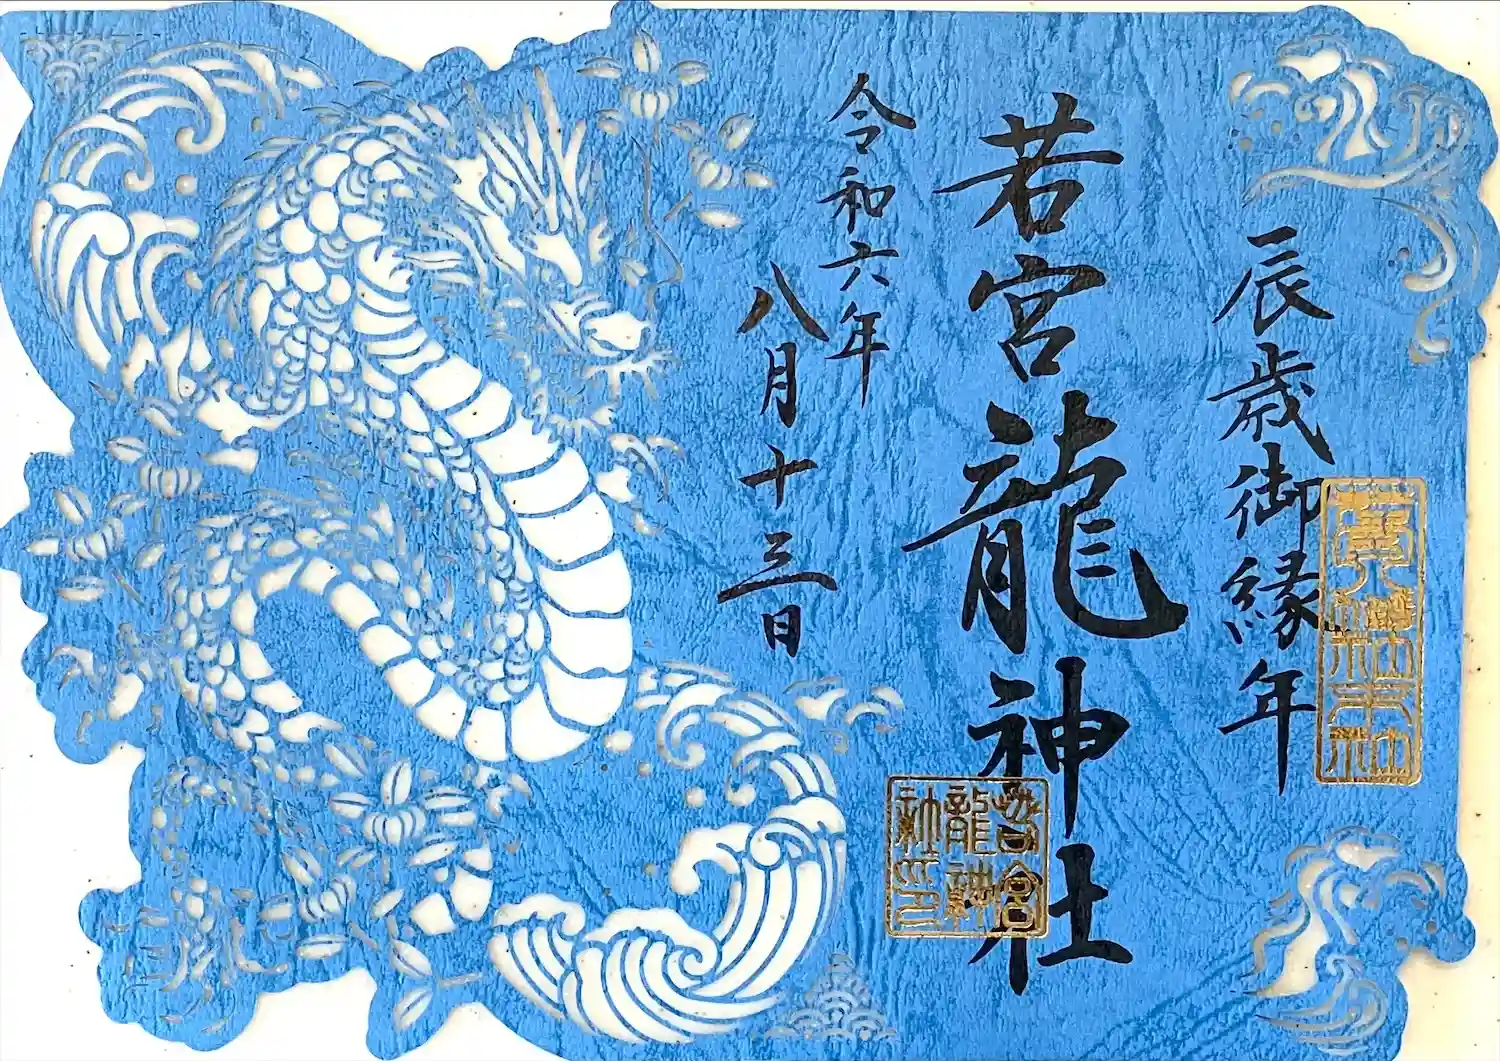 辰歳御縁年
若宮龍神社
令和六年
八月十三日
若宮
龍神
社印